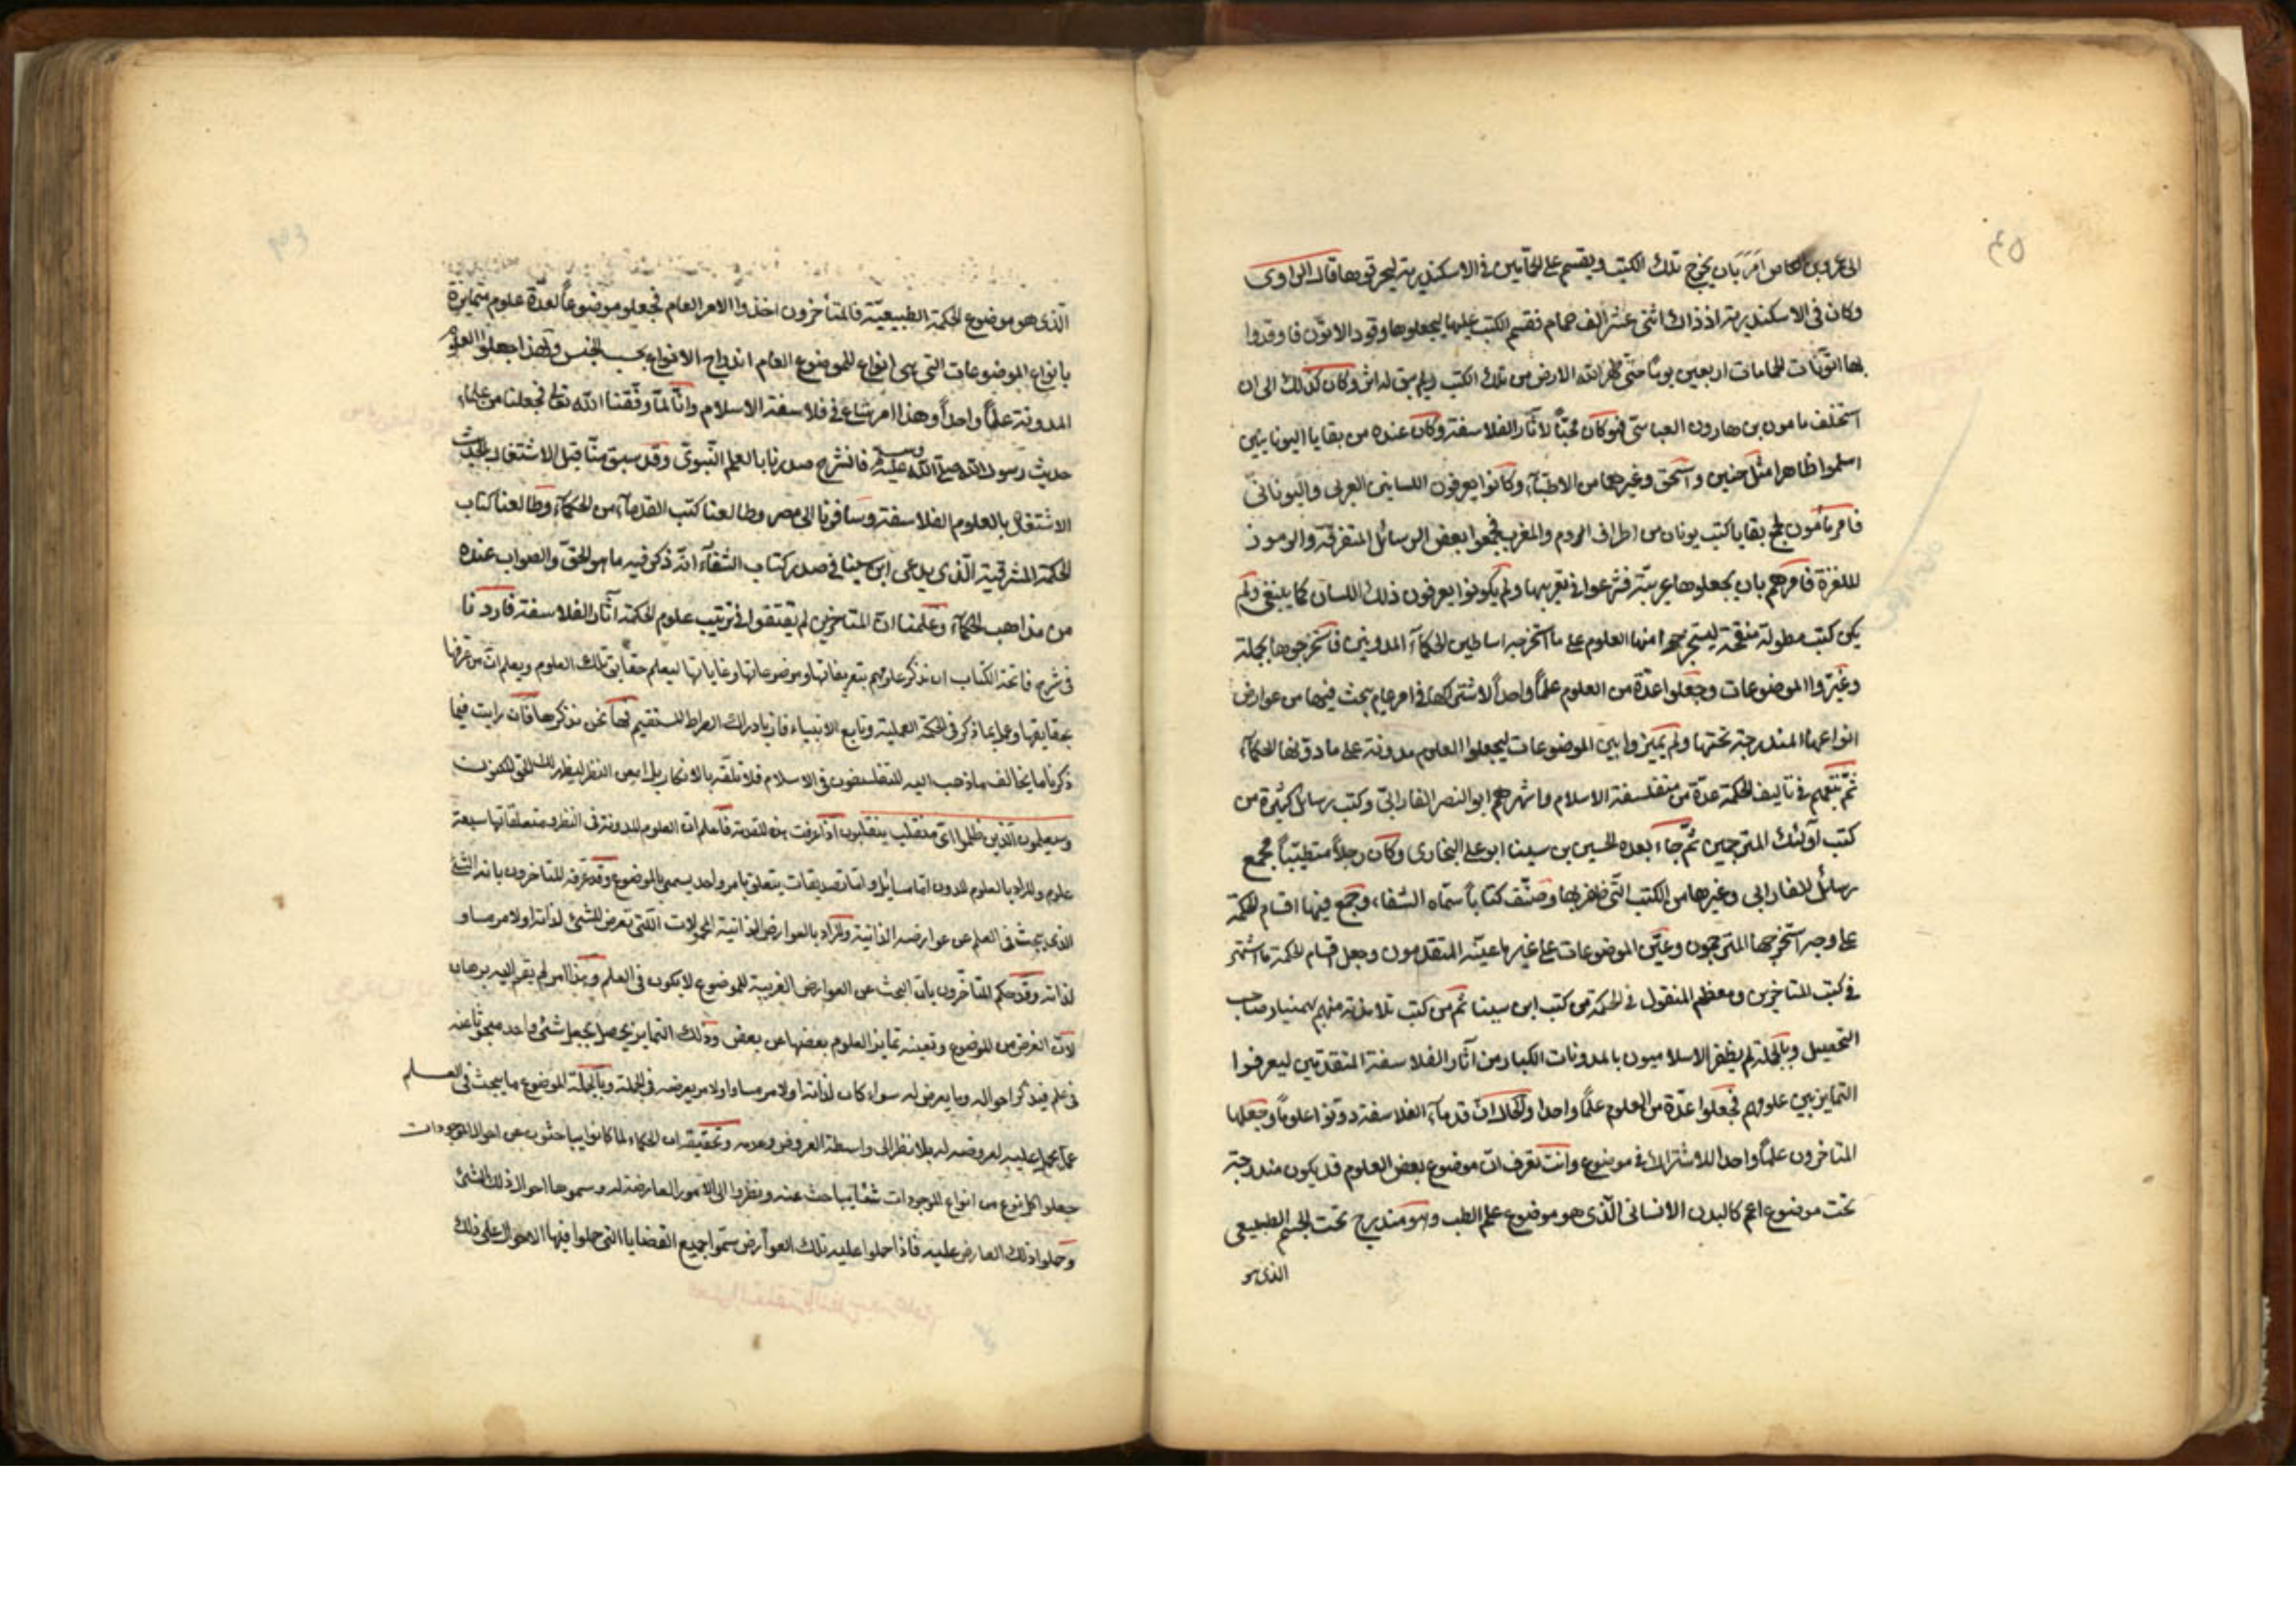 الى عمرو بن العاص امر بان يخرج تلك الكتب ويقسم على الحمامين في الاسكندرية ليحرقوها قال الراوى
وكان في الاسكندرية اذ ذاك اثنتى عشر الف حمام فقسم الكتب عليها ليجعلوها وقود الاتون فاوقدوا
بها اتونات الحمامات اربعين يوما حتى طهر الله الارض من تلك الكتب ولم يبق له اثر وكان كذلك الى ان
استخلف مامون بن هارون العباسى فهو كان محبّاً لآثار الفلاسفة وكان عنده من بقايا اليونانيين
اسلموا ظاهرا مثل حنين واسحق وغيرهما من الاطباء وكانوا يعرفون اللسانين العربى واليونانى
فامر مأمون بجمع بقايا كتب يونان من اطراف الروم والمغرب فجمعوا بعض الرسائل المتفرقة والرموز
الملغزة فامرهم بان يجعلوها عربية فشرعوا في تعريبها ولم يكونوا يعرفون ذلك اللسان كما ينبغى ولم
يكن كتب مطولة منقحة ليستخرجوا منها العلوم على ما استخرجه اساطين الحكماء المدونين فاستخرجوها مجملة
وغيّروا الموضوعات وجعلوا عدّة من العلوم علماً واحداً لاشتراكها في امر عام يبحث فيها من عوارض
انواعها المندرجة تحتها ولم يميّزوا بين الموضوعات ليجعلوا العلوم مدونة على ما دوّنها الحكماء
ثمّ تبعهم في تأليف الحكمة عدّة من متفلسفة الاسلام واشهرهم ابو النصر الفارابى وكتب رسائل كثيرة من
كتب اولئك المترجمين ثمّ جاء بعده الحسين بن سينا ابو على البخارى وكان رجلاً متطبّباً فجمع
رسائل الفارابى وغيرها من الكتب التى ظفر بها وصنّف كتاباً سمّاه الشفاء وجمع فيها اقسام الحكمة
على وجه استخرجها المترجمون وعيّن الموضوعات على غير ما عيّنه المتقدمون وجعل اقسام الحكمة ما اشتهر
في كتب المتاخرين ومعظم المنقول في الحكمة من كتب ابن سينا ثم من كتب تلامذته منهم بهمنيار صاحب
التحصيل وبالجملة لم يظفر الاسلاميون بالمدونات الكبار من آثار الفلاسفة المتقدمين ليعرفوا
التمايز بين علومهم فجعلوا عدّة من العلوم علماً واحدا والحال ان قدماء الفلاسفة دوّنوا علوماً وجعلها
المتاخرون علماً واحدا للاشتراك في موضوع وانت تعرف انّ موضوع بعض العلوم قد يكون مندرجة
تحت موضوع اعم كالبدن الانسانى الّذى هو موضوع علم الطب وهو مندرج تحت الجسم الطبيعى
الذى هو
الّذى هو موضوع الحكمة الطبيعيّة فالمتأخرون اخذوا الامر العام فجعلوه موضوعاً لعدّة علوم متمايزة
بانواع الموضوعات التى هى انواع للموضوع العام اندراج الانواع بحسب الجنس ولهذا جعلوا العلوم
المدونة علماً واحداً وهذا امر شاع في فلاسفة الاسلام وانّا لمّا وفّقنا الله تعالى فجعلنا من علماء
حديث رسول الله صلّى الله عليه وسلم فانشرح صدرنا بالعلم النّبوىّ وقد سبق منّا قبل الاشتغال بالحديث
الاشتغال بالعلوم الفلاسفة وسافرنا الى مصر وطالعنا كتب القدماء من الحكماء وطالعنا كتاب
الحكمة المشرقية الّذى يدعى ابن سينا في صدر كتاب الشفاء انّه ذكر فيه ما هو الحقّ والصواب عنده
من مذاهب الحكماء وعلمنا انّ المتاخرين لم يقتفوا في ترتيب علوم الحكمة آثار الفلاسفة فاردنا
في شرح فاتحة الكتاب ان نذكر علومهم بتعريفاتها وموضوعاتها وغاياتها ليعلم حقايق تلك العلوم ويعلم انّ من عرفها
بحقايقها وعمل بما ذكر في الحكمة العملية وتابع الانبياء فاز بادراك الصراط المستقيم فها نحن نذكرها فان رايت فيما
ذكرنا ما يخالف ما ذهب اليه المتفلسفون في الاسلام فلا تلقه بالانكار بل امعن النظر ليظهر لك الحق
وسيعلمون الّذين ظلموا اىّ منقلب ينقلبون اذا عرفت هذه المقدمة فاعلم ان العلوم المدونة في النظر ومتعلقاتها سبعة
علوم والمراد بالعلوم المدون امّا مسائل وامّا تصديقات يتعلق بامر واحد يسمى بالموضوع وقد عرفه المتاخرون بانه الشئ
الذى يبحث فى العلم عن عوارضه الذاتية والمراد بالعوارض الذاتية المحمولات التى تعرض للشئ لذاته او لامر مساو
لذاته وقد حكم المتأخرون بان البحث عن العوارض الغريبة للموضوع لا يكون فى العلم وهذا امر لم يقم اليه برهان
لان الغرض من الموضوع وتعينه تمايز العلوم بعضها من بعض وذلك التمايز يحصل بجعل شئ واحد مبحوثا عنه
فى علم فيذكر احواله وما يعرض له سواء كان لذاته او لامر مساو او لامر يعرضه فى الجملة وبالجملة الموضوع ما يبحث فى العلم
عمّا يحمل عليه لعروضه له بلا نظر الى واسطة العروض وعدمه وتحقيقه ان الحكماء لما كانوا يباحثون عن احوال الموجودات
جعلوا كل نوع من انواع الموجودات شيئا يباحث عنه ونظروا الى الامور العارضة له وسموها احوال ذلك الشئ
وحملوا ذلك العارض عليه فاذا حملوا عليه تلك العوارض سمّوا جميع القضايا التى حملوا فيها الاحوال على ذلك